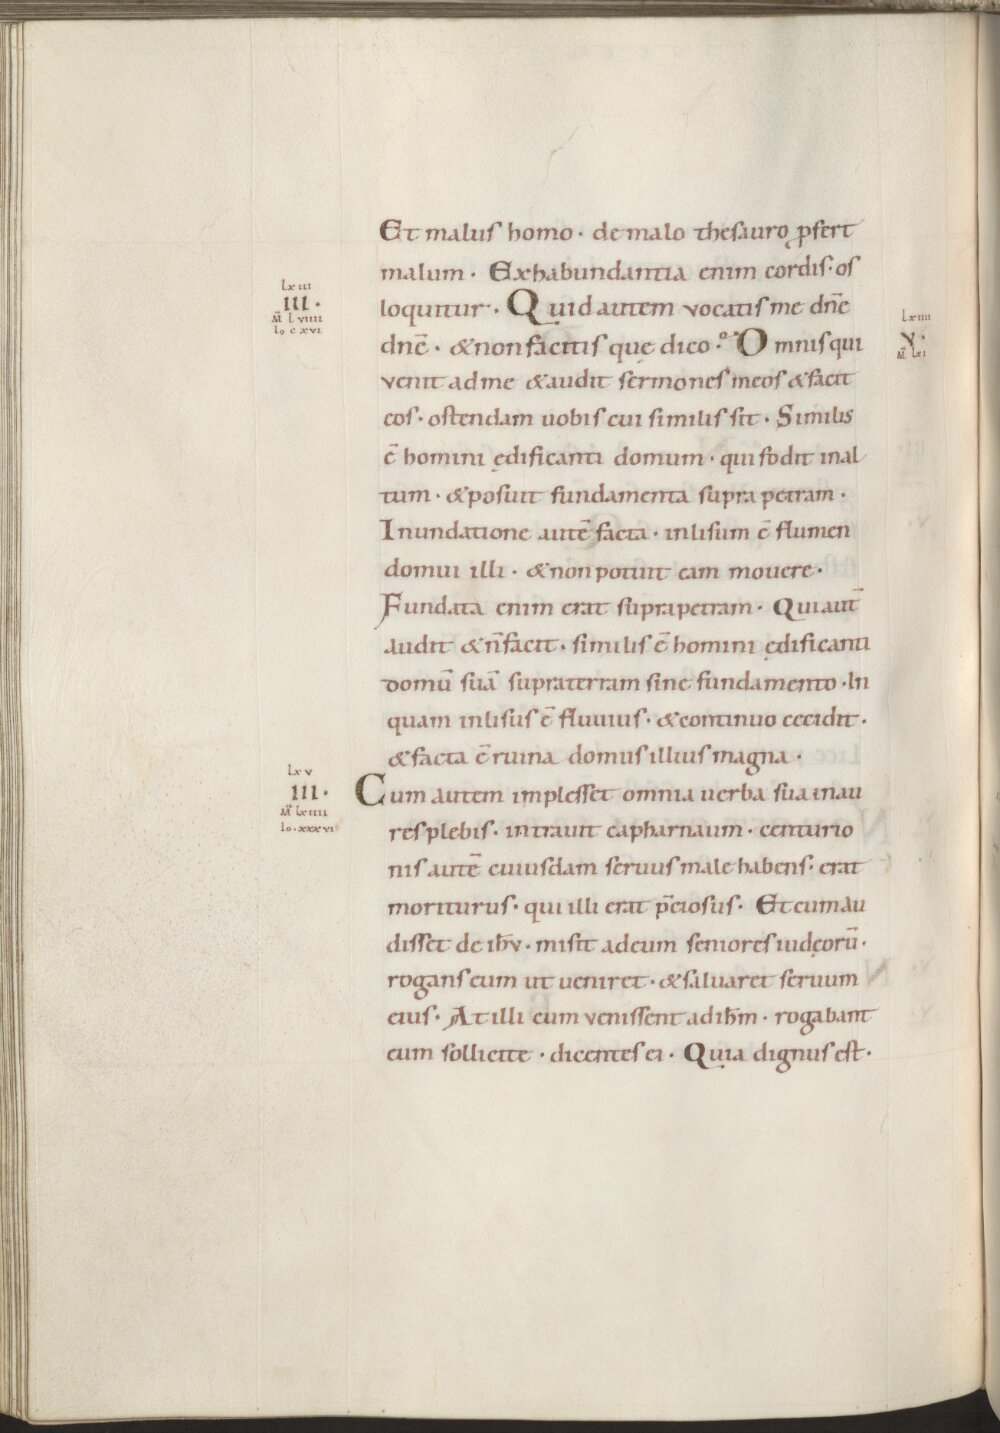 Et malus homo · de malo thesauro ꝓfert
malum · Ex habundantia enim cordis · os
lxiii
III ·
M̄ lviiii
Io cxvi
loquitur · Quid autem vocatis me dn̄e
dn̄e · & non facitis quę dico ·
lxiiii
V ·
M̄ lxi
Omnis qui
venit ad me & audit sermones meos & facit
eos · ostendam uobis cui similis sit · Similis
ē homini ędificanti domum · qui fodit in al
tum · & posuit fundamenta supra petram ·
Inundatione autē facta · inlisum ē flumen
domui illi · & non potuit eam movere ·
Fundata enim erat supra petram · Qui aut̄
audit & n̄ facit · similis ē homini ędificanti
domū suā supra terram sine fundamento · In
quam inlisus ē fluvius · & continuo cecidit ·
& facta ē ruina domus illius magna ·
lxv
III ·
M̄ lxiiii
Io · xxxvi
Cum autem implesset omnia uerba sua in au
res plebis · intravit capharnaum · centurio
nis autē cuiusdam servus male habens · erat
moriturus · qui illi erat p̄ciosus · Et cum au
disset de ih̄v · misit ad eum seniores iudęorū ·
rogans eum ut ueniret · & saluaret seruum
eius · At illi cum venissent ad ih̄m · rogabant
eum sollicite · dicentes ei · Quia dignus est ·